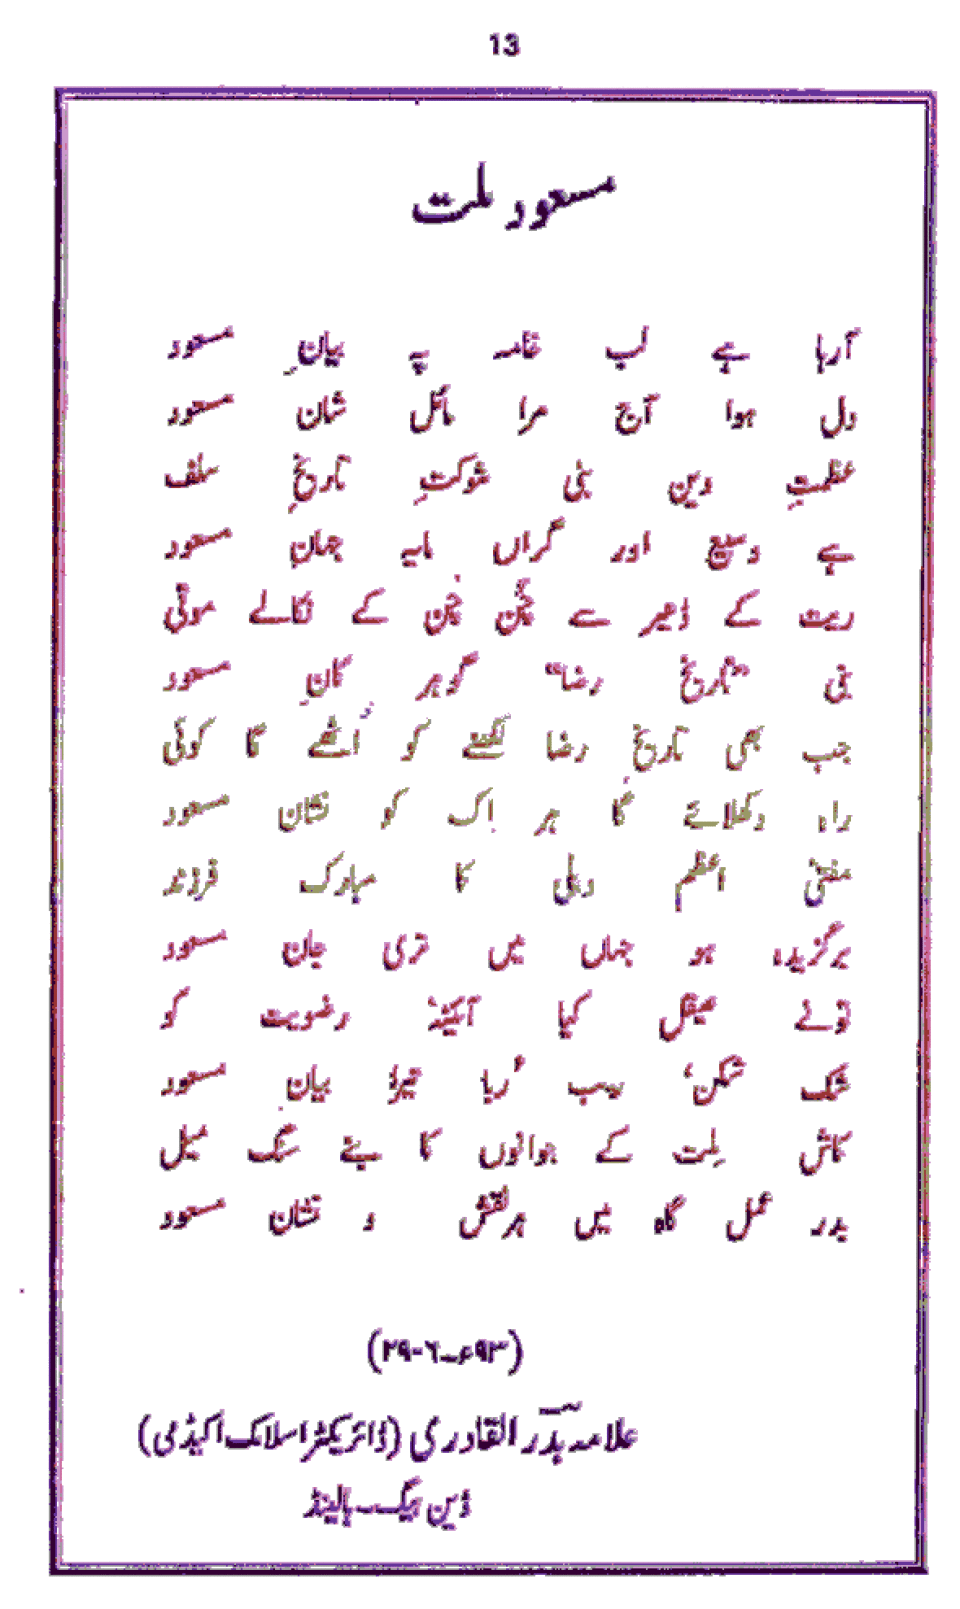 13
مسعود ملت
آرہا ہے لب خامہ پہ بیانِ مسعود
دل ہوا آج مرا مائل شان مسعود
عظمتِ دین بنی شوکتِ تاریخِ سلف
ہے وسیع اور گراں مایہ جہان مسعود
ریت کے ڈھیر سے چُن چُن کے نکالے موتی
بنی "تاریخ رضا" گوہر کانِ مسعود
جب بھی تاریخ رضا لکھنے کو اُٹھے گا کوئی
راہ دکھلائے گا ہر اک کو نشان مسعود
مفتیٔ اعظم دہلی کا مبارک فرزند
برگزیدہ ہو جہاں میں تری جان مسعود
تونے صیقل کیا آئینۂ رضویت کو
شک شکن، ریب رُبا تیرا بیانِ مسعود
کاش مِلت کے جوانوں کا بنے سنگ میل
بدر عمل گاہ میں ہر نقش و نشان مسعود
(۲۹-۶-۹۳ء)
علامہ بدر القادری (ڈائریکٹر اسلامک اکیڈمی)
ڈین ہیگ۔ہالینڈ